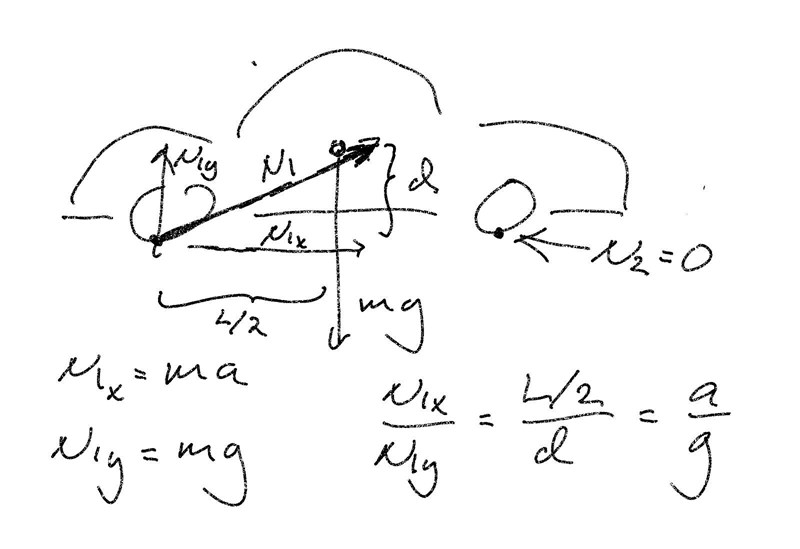 N1y
N1
d
N1x
N2 = 0
L/2
mg
N1x = ma
N1y = mg
N1x/N1y = (L/2)/d = a/g